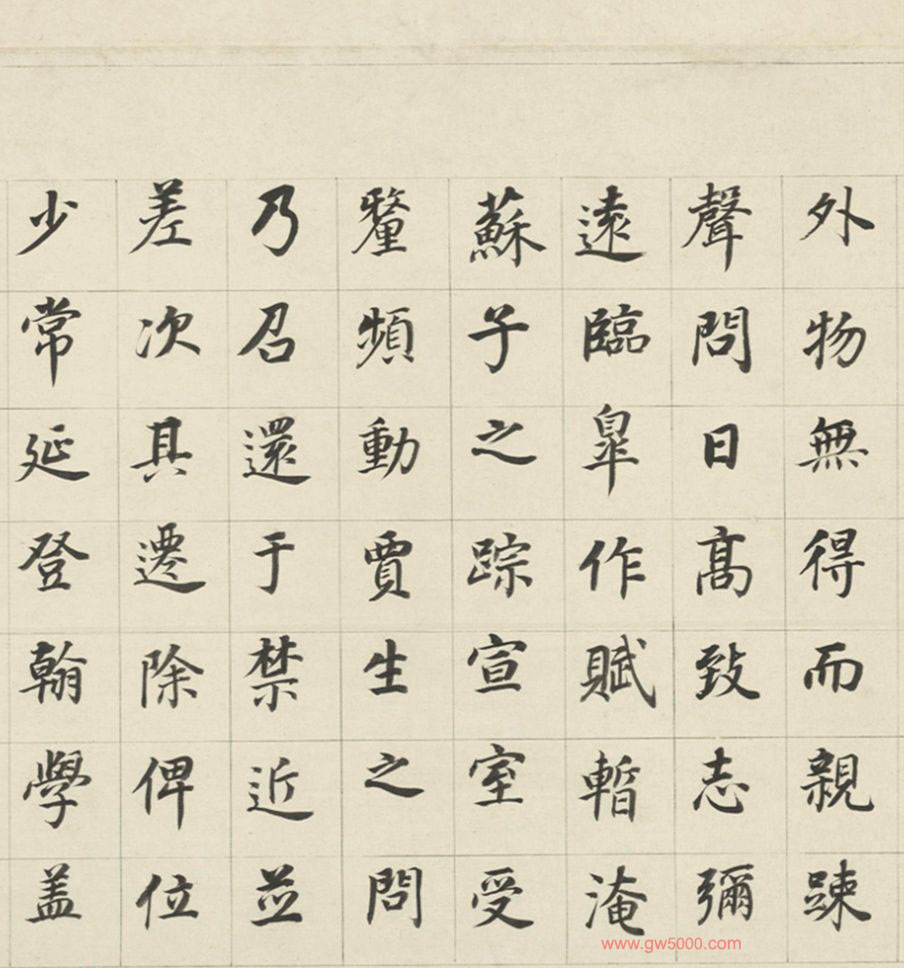 外物無得而親踈
聲問日髙致志彌
遠臨皐作賦暫淹
蘇子之踪宣室受
釐頻動賈生之問
乃召還于禁近並
差次具遷除俾位
少常延登翰學盖
www.gw5000.com